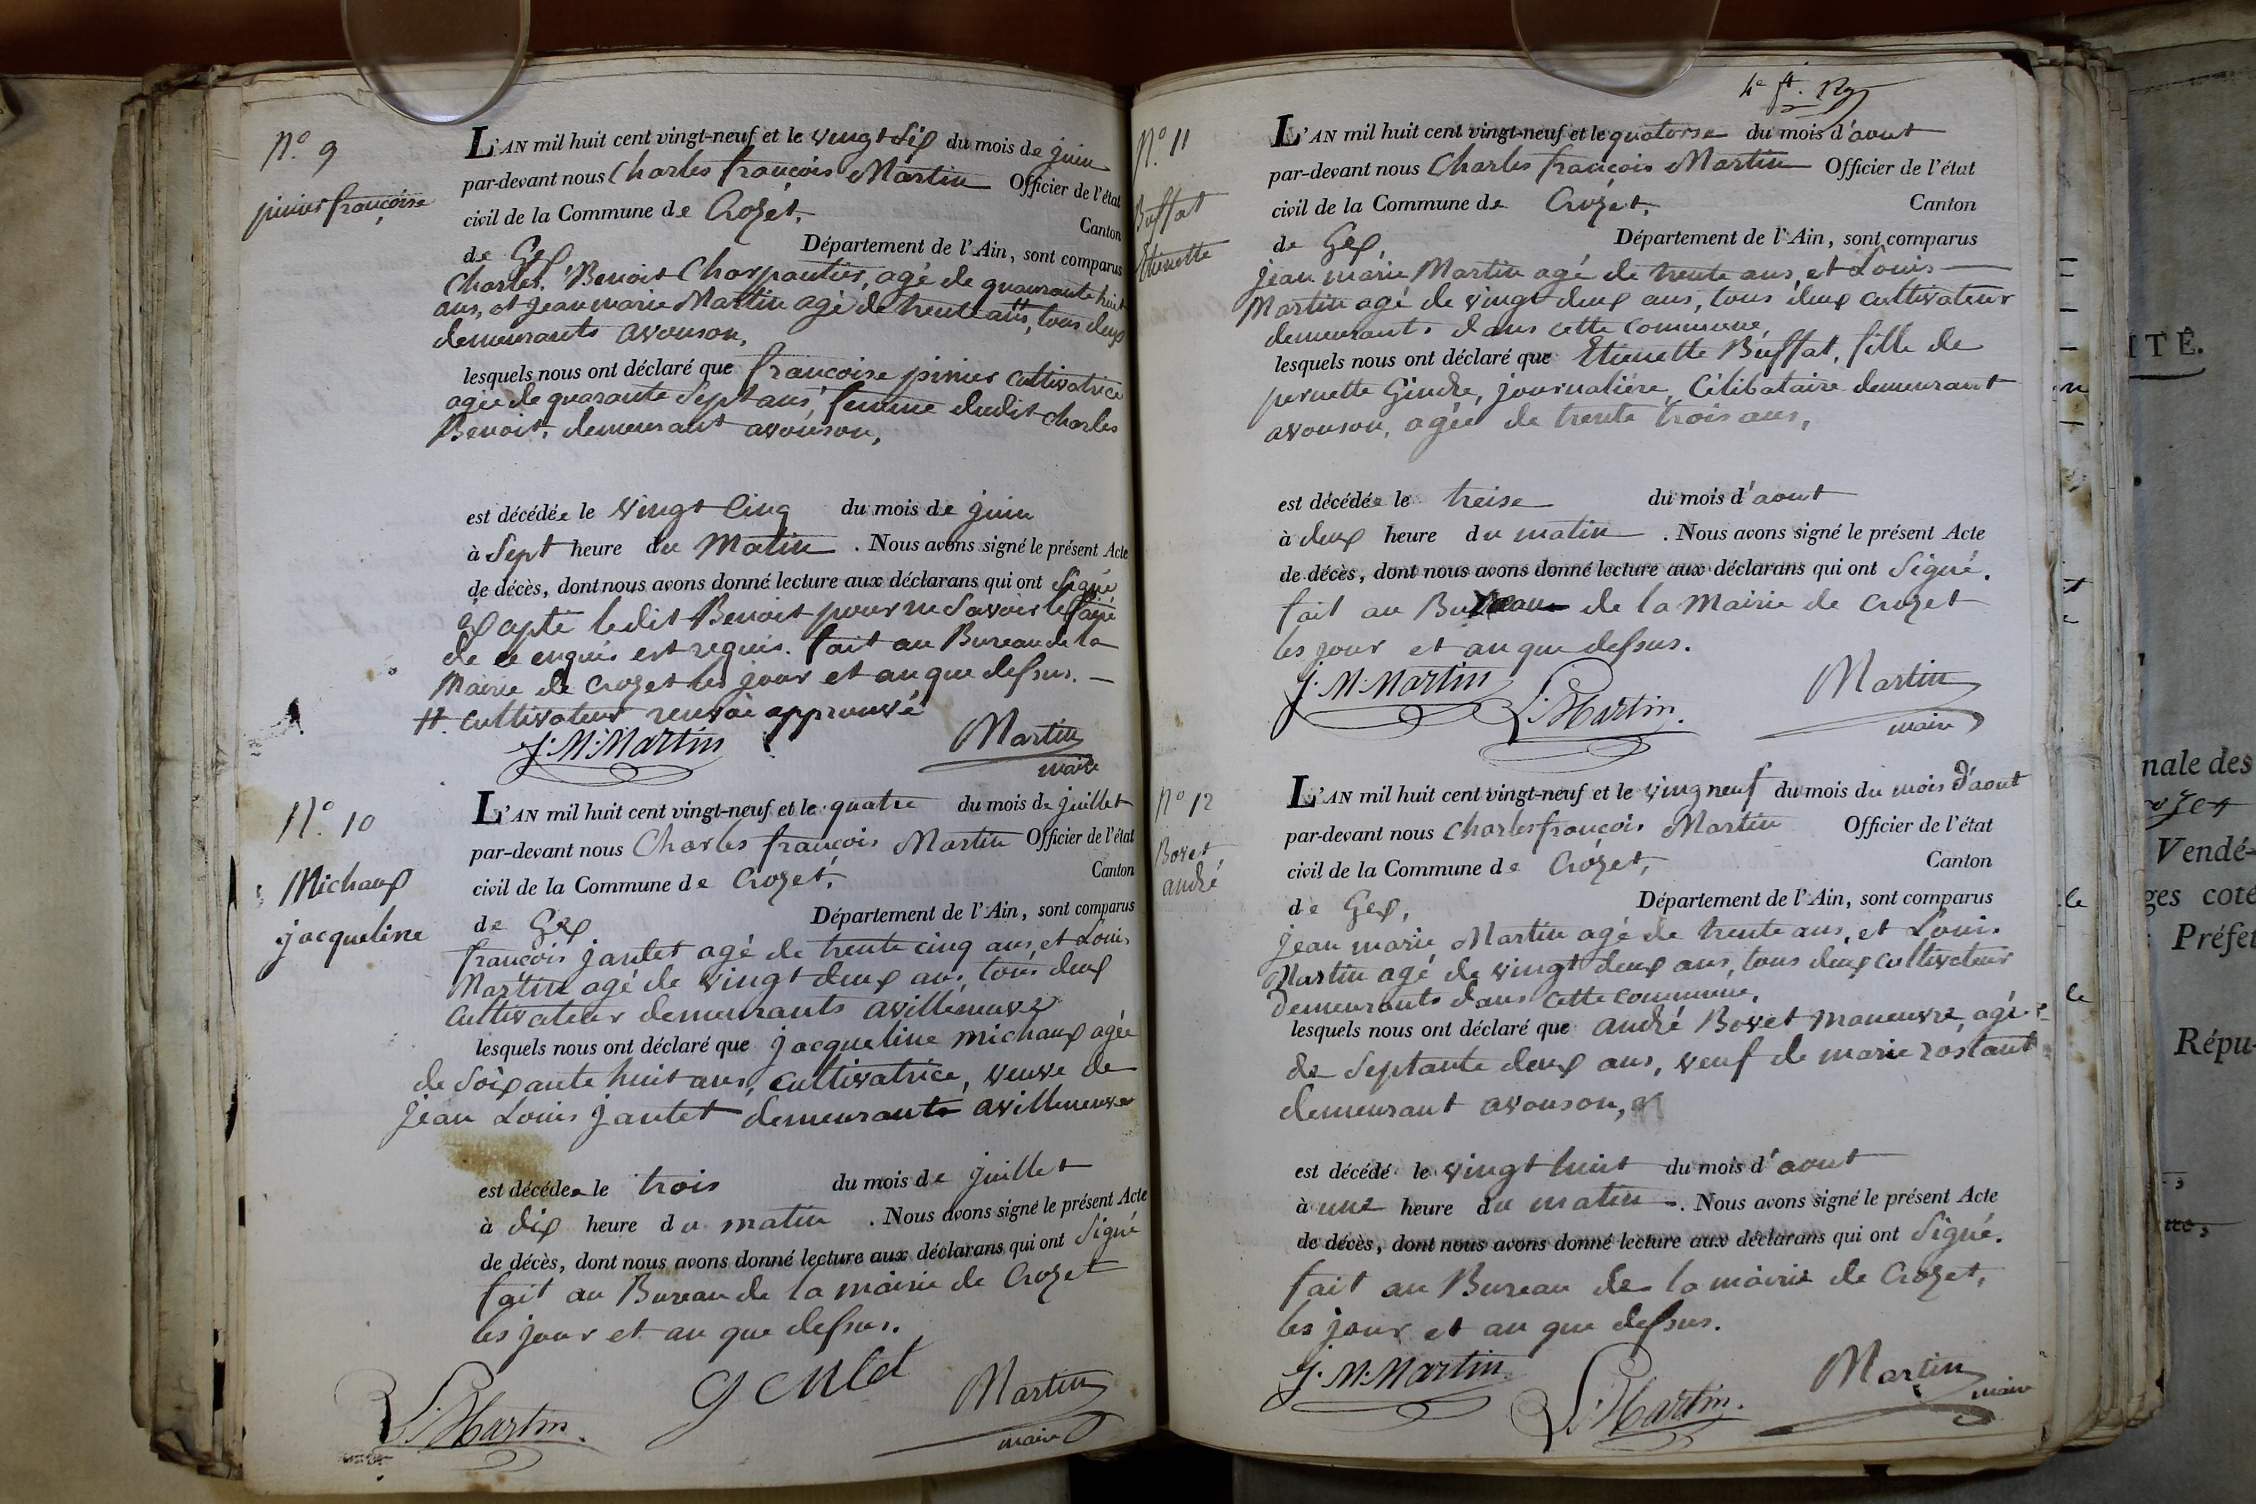 N.° 9
pinier françoise
L'AN mil huit cent vingt-neuf et le vingt six du mois de juin
par-devant nous Charles françois Martin Officier de l'état
civil de la Commune de Crozet, Canton
de Gex Département de l'Ain, sont comparus
Charles Benoit Charpantier, agé de quaurante huit
ans, et jean marie Martin agé de trente ans, # tous deux
demeurants avouson,
lesquels nous ont déclaré que françoise pinier cultivatrice
agée de quarante Sept ans, femme dudit charles
Benoit, demeurant avouson,
est décédée le vingt Cinq du mois de juin
à Sept heure du Matin. Nous avons signé le présent Acte
de décès, dont nous avons donné lecture aux déclarans qui ont Signé
Exapté ledit Benoit pour ne Savoir le faire
de ce enquis est requis. fait au Bureau de la
Mairie de Crozet les jour et an que dessus. —
# cultivateur renvoie approuvé
J. M. Martin
Martin
maire
N.° 10
Michaux
jacqueline
L'AN mil huit cent vingt-neuf et le quatre du mois de juillet
par-devant nous Charles françois Martin Officier de l'état
civil de la Commune de Crozet, Canton
de Gex Département de l'Ain, sont comparus
françois jantet agé de trente cinq ans, et Louis
Martin agé de vingt deux ans, tous deux
Cultivateur demeurants avilleneuve
lesquels nous ont déclaré que jacqueline michaux agée
de Soixante huit ans, cultivatrice, veuve de
jean Louis jantet demeurante avilleneuve
est décédée le trois du mois de juillet
à dix heure du matin. Nous avons signé le présent Acte
de décès, dont nous avons donné lecture aux déclarans qui ont Signé
fait au Bureau de la mairie de Crozet
les jour et an que dessus.
L. Martin.
Martin
maire
4e ft.
N.° 11
Buffat
Etienette
L'AN mil huit cent vingt-neuf et le quatorse du mois d'aout
par-devant nous Charles françois Martin Officier de l'état
civil de la Commune de Crozet, Canton
de Gex, Département de l'Ain, sont comparus
jean marie Martin agé de trente ans, et Louis
Martin agé de vingt deux ans, tous deux cultivateur
demeurants dans cette commune,
lesquels nous ont déclaré que Etienette Buffat, fille de
pernette Gindre, journaliére, Célibataire demeurant
avouson, agée de trente trois ans,
est décédée le treise du mois d'aout
à deux heure du matin. Nous avons signé le présent Acte
de décès, dont nous avons donné lecture aux déclarans qui ont Signé.
fait au Bureau de la Mairie de Crozet
les jour et an que dessus.
J. M. Martin
L. Martin.
Martin
maire
N° 12
Bovet
andré
L'AN mil huit cent vingt-neuf et le ving neuf du mois du mois d'aout
par-devant nous Charles françois Martin Officier de l'état
civil de la Commune de Crozet, Canton
de Gex, Département de l'Ain, sont comparus
jean marie Martin agé de trente ans, et Louis
Martin agé de vingt deux ans, tous deux cultivateur
Demeurants dans cette commune,
lesquels nous ont déclaré que andré Bovet maneuvre, agé
de Septante deux ans, veuf de marie rostant
demeurant avouson,
est décédé le vingt huit du mois d'aout
à une heure du matin. Nous avons signé le présent Acte
de décès, dont nous avons donné lecture aux déclarans qui ont Signé.
fait au Bureau de la mairie de Crozet,
les jour et an que dessus.
J. M. Martin
L. Martin.
Martin
maire
ITÉ.
nale des
Vendé-
ges coté
Préfet
Répu-